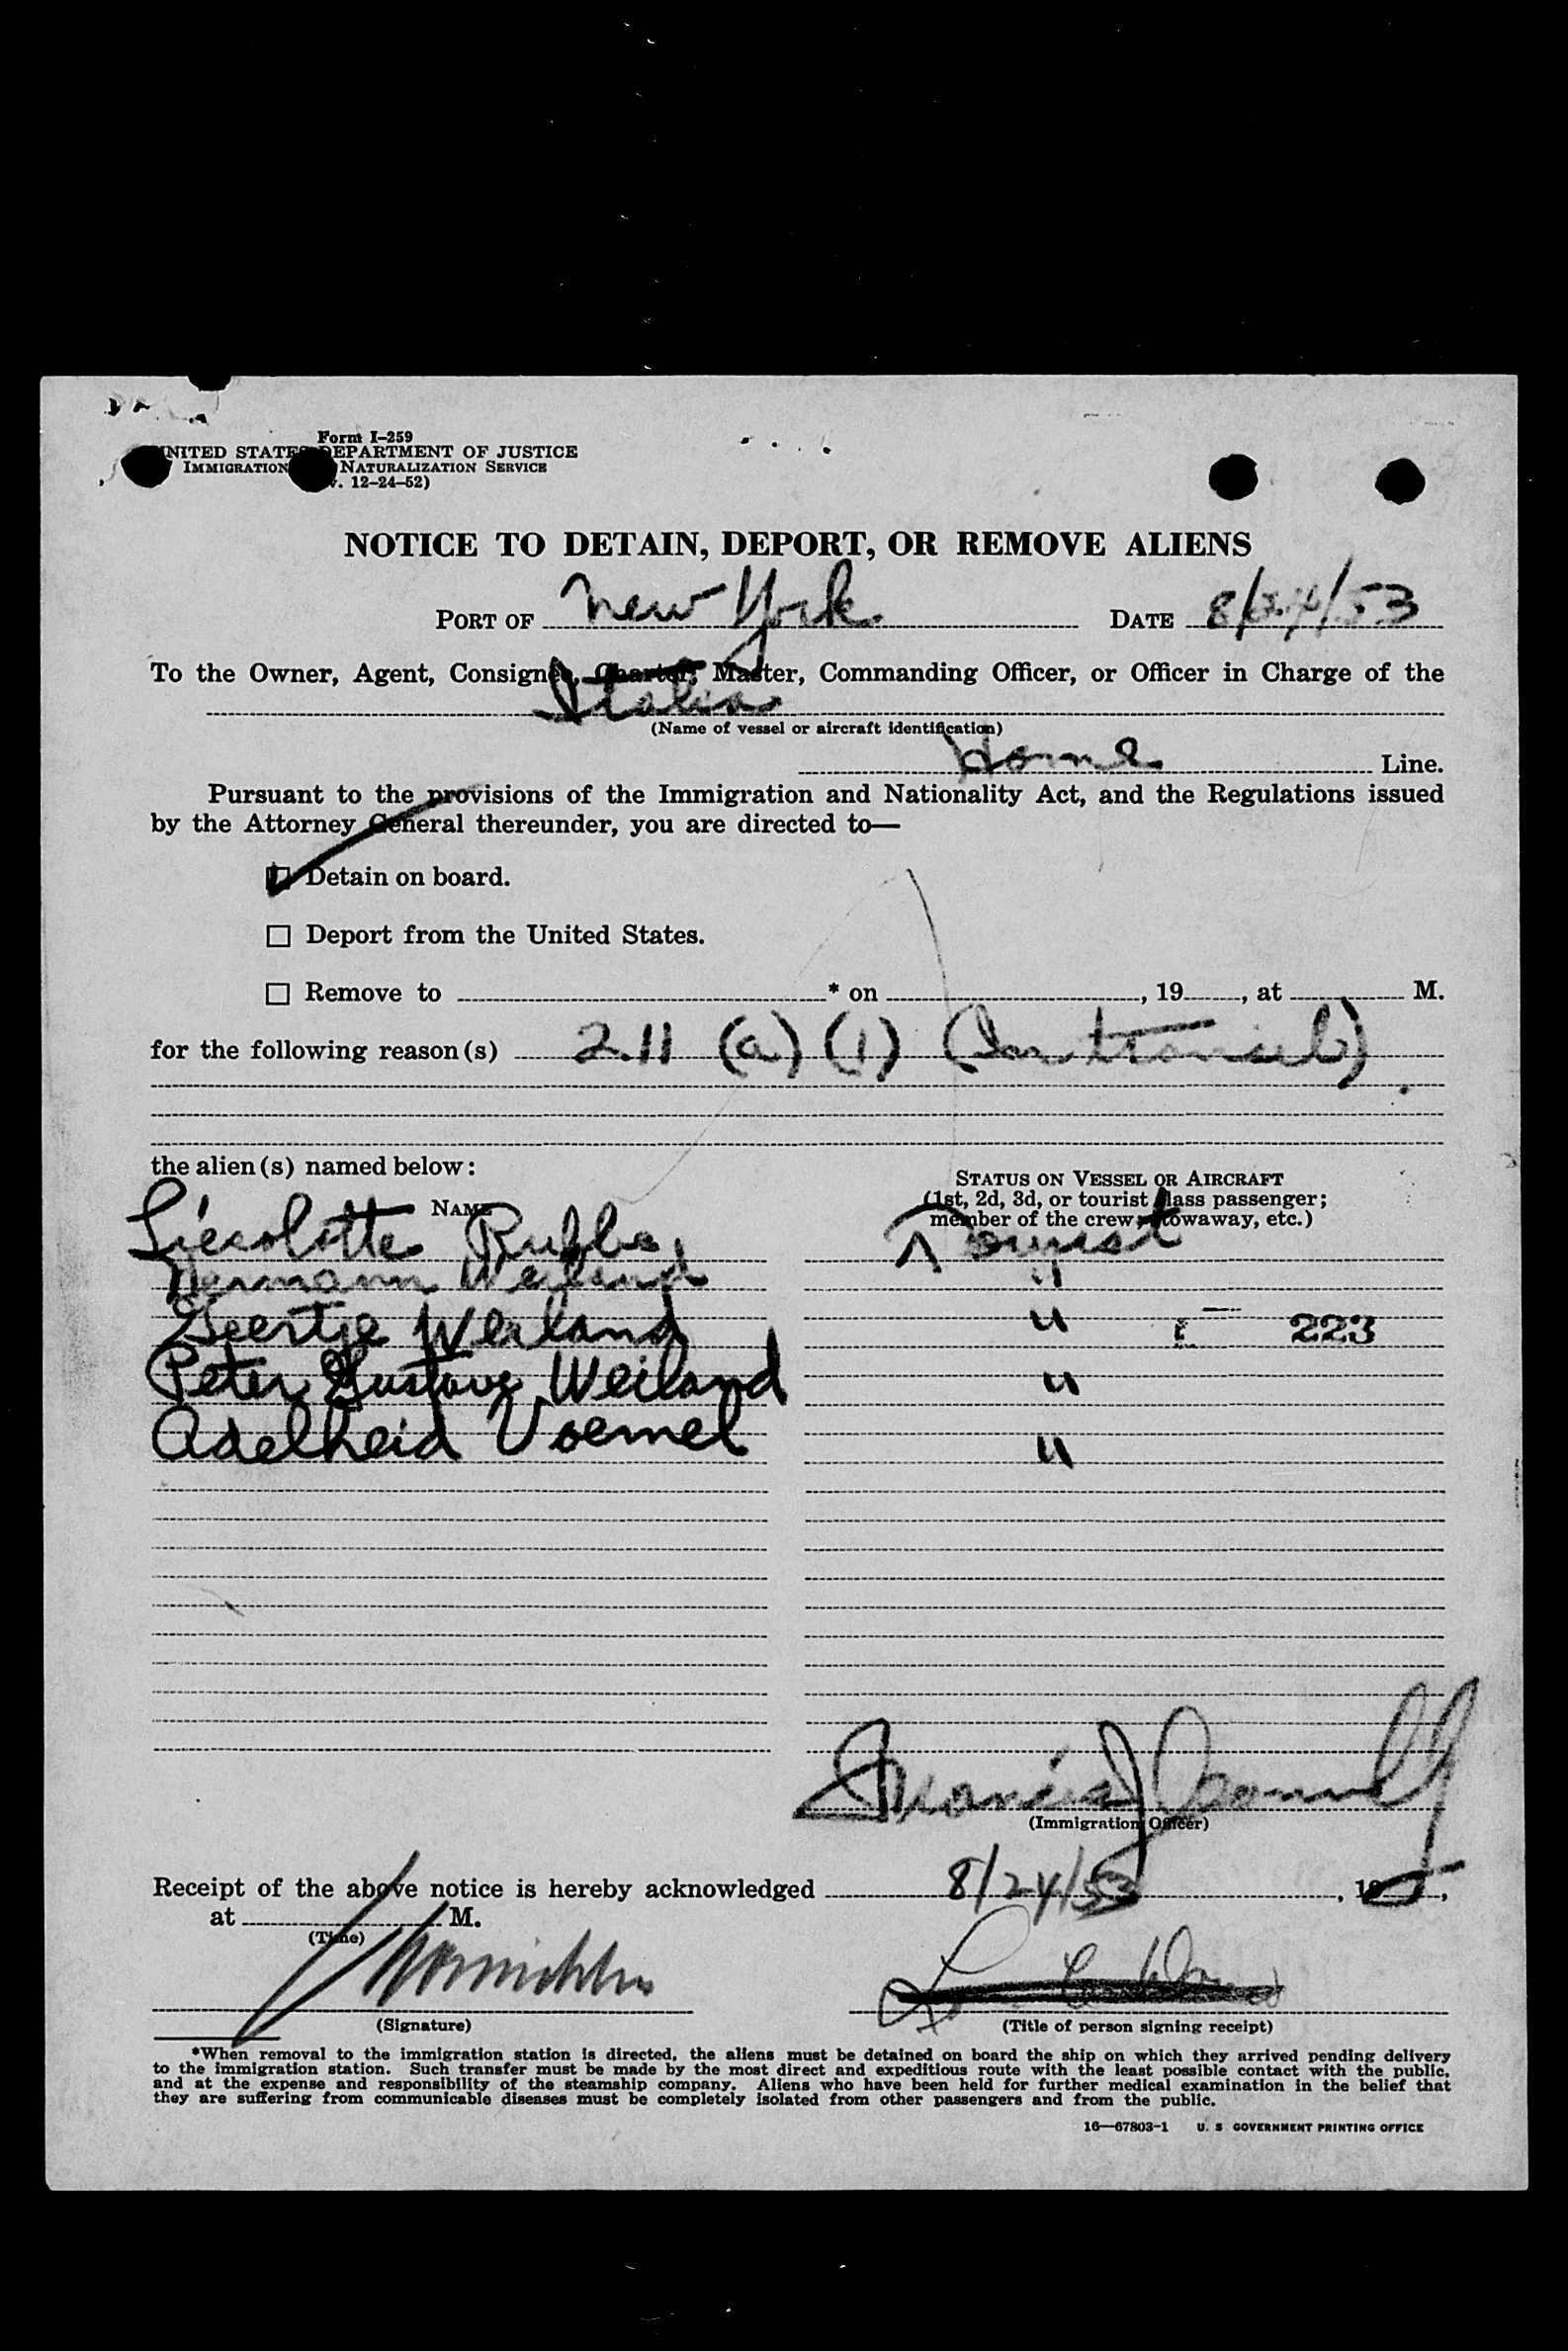 Form I-259
UNITED STATES DEPARTMENT OF JUSTICE
IMMIGRATION NATURALIZATION SERVICE
. 12-24-52)
NOTICE TO DETAIN, DEPORT, OR REMOVE ALIENS
PORT OF New York DATE 8/24/53
To the Owner, Agent, Consignee, Charter, Master, Commanding Officer, or Officer in Charge of the
Italia
(Name of vessel or aircraft identification)
Home Line.
Pursuant to the provisions of the Immigration and Nationality Act, and the Regulations issued
by the Attorney General thereunder, you are directed to—
Detain on board.
Deport from the United States.
Remove to * on , 19 , at M.
for the following reason(s) 211 (a) (1) (In transit)
the alien(s) named below:
STATUS ON VESSEL OR AIRCRAFT
NAME (1st, 2d, 3d, or tourist class passenger;
member of the crew; stowaway, etc.)
Lieselotte Tourist
Hermann Weiland "
Geertje Weiland " 223
Peter Gustave Weiland "
Adelheid Voemel "
Francis J Connell
(Immigration Officer)
Receipt of the above notice is hereby acknowledged 8/24/53 , 19 ,
at M.
(Time)
(Signature) (Title of person signing receipt)
*When removal to the immigration station is directed, the aliens must be detained on board the ship on which they arrived pending delivery
to the immigration station. Such transfer must be made by the most direct and expeditious route with the least possible contact with the public,
and at the expense and responsibility of the steamship company. Aliens who have been held for further medical examination in the belief that
they are suffering from communicable diseases must be completely isolated from other passengers and from the public.
16—67803-1 U. S GOVERNMENT PRINTING OFFICE